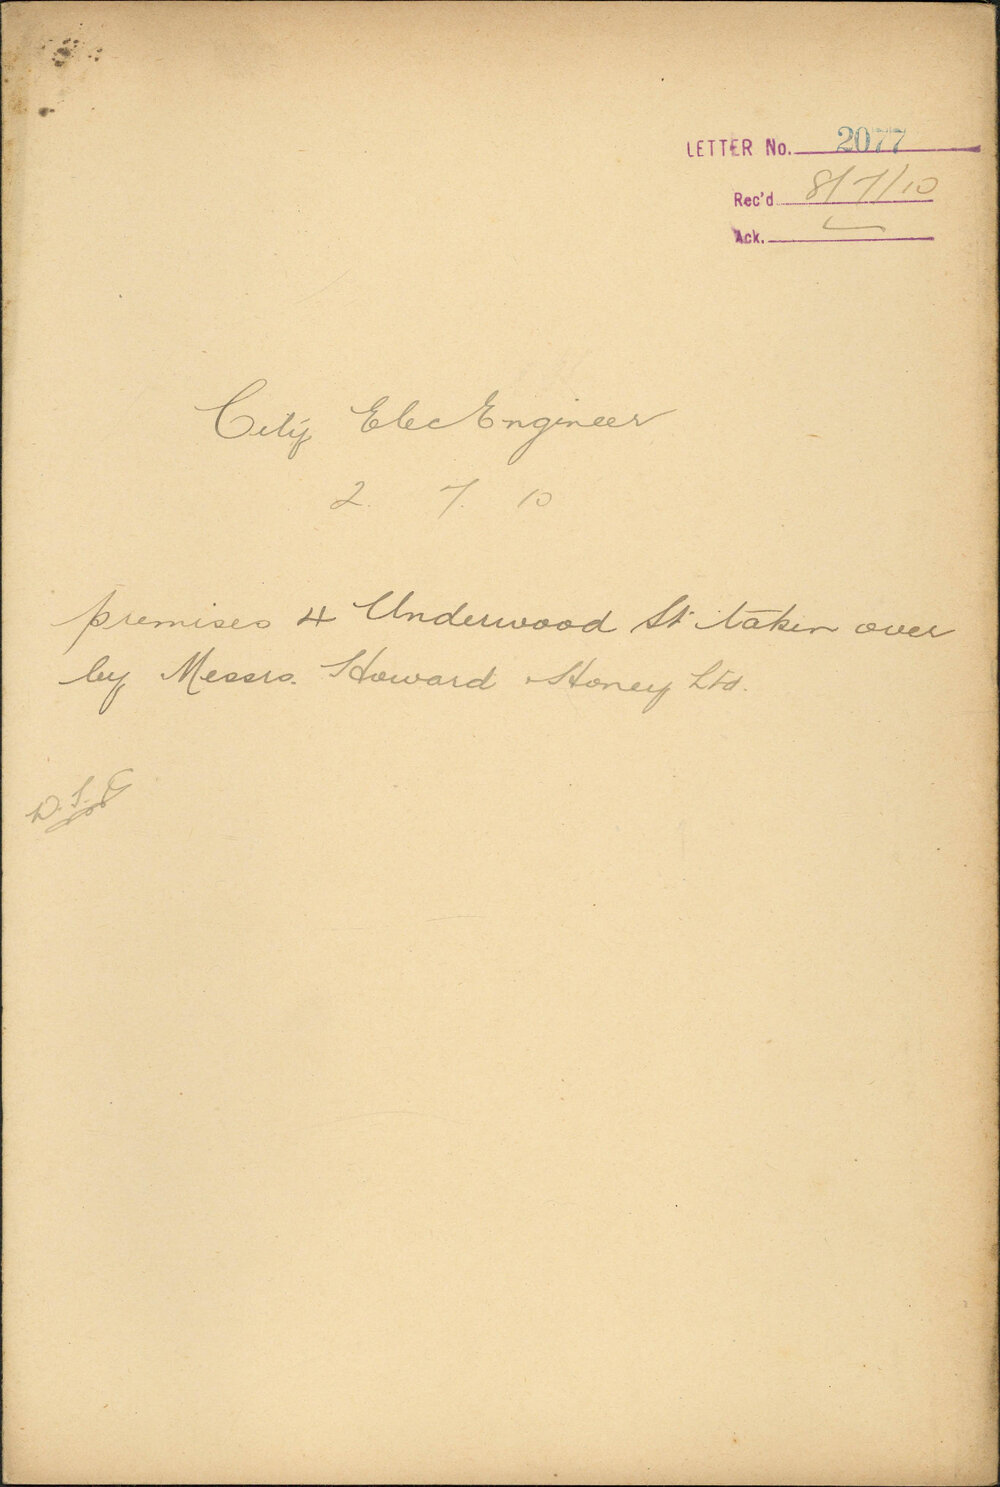 LETTER No. 2077
Rec'd 8/7/10
Ack.
City Elec Engineer
2. 7. 10
premises 4 Underwood St taken over
by Messrs. Howard Honey Ltd.